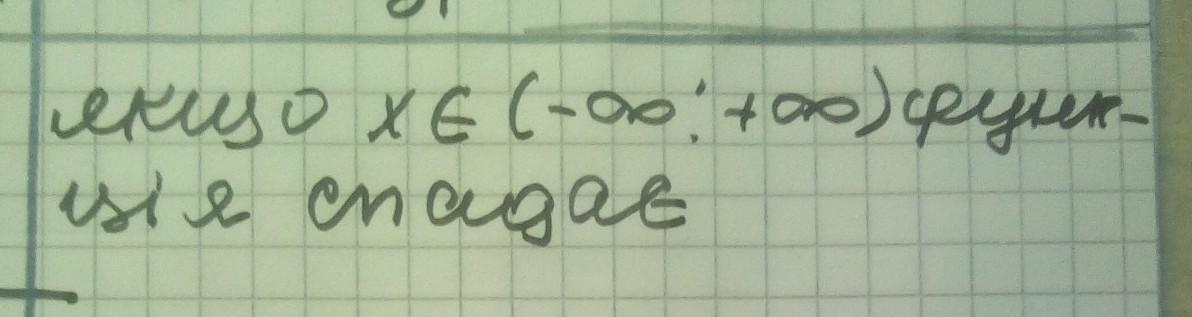 якщо x ∈ (-∞; +∞) функ-
ція спадає